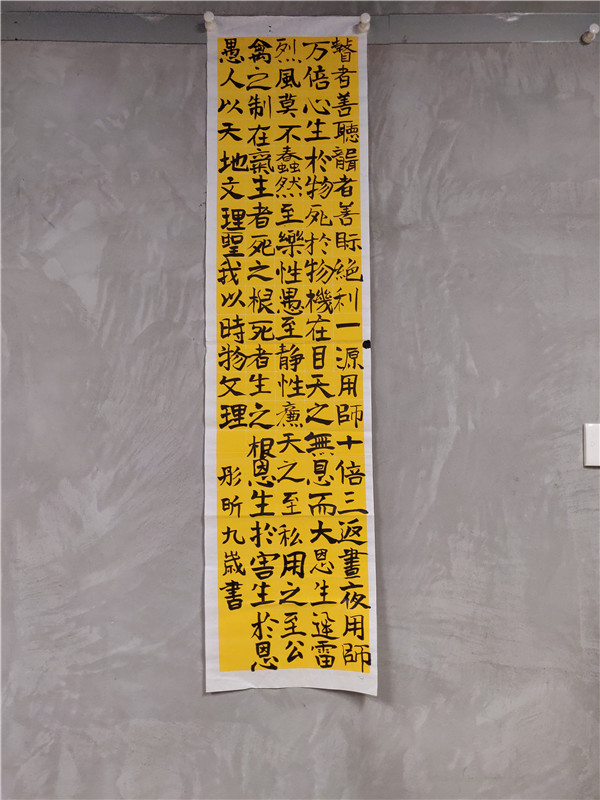 瞽者善聽聾者善眎絕利一源用師十倍三返晝夜用師
万倍心生於物死於物機在目天之無恩而大恩生迅雷
烈風莫不蠢然至樂性愚至静性廉天之至私用之至公
禽之制在氣生者死之根死者生之根恩生於害生於恩
愚人以天地文理聖我以時物文理 彤昕九歲書